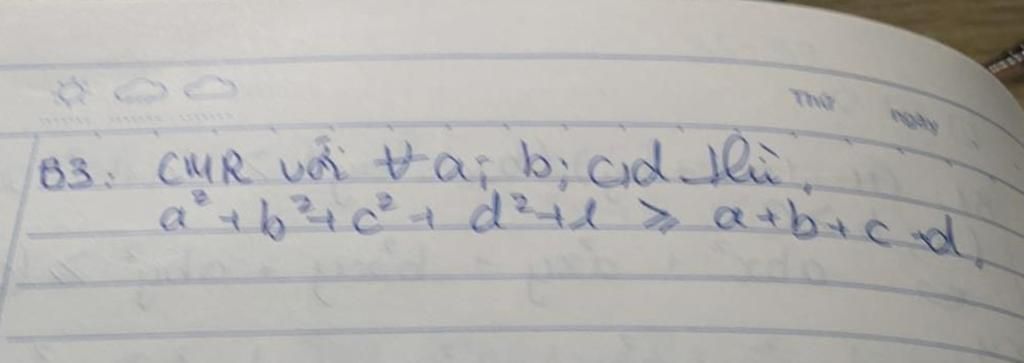 Thứ ngày
B3: CMR với ∀ a; b; c; d thì.
a² + b² + c² + d² + 1 ⩾ a + b + c + d.